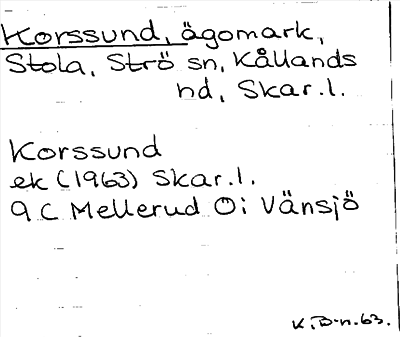 Korssund, ägomark,
Stola, Strö sn, Kållands
hd, Skar.l.
Korssund
ek (1963) Skar.l.
9 C Mellerud Ö; Vänsjö
K.B-n.63.